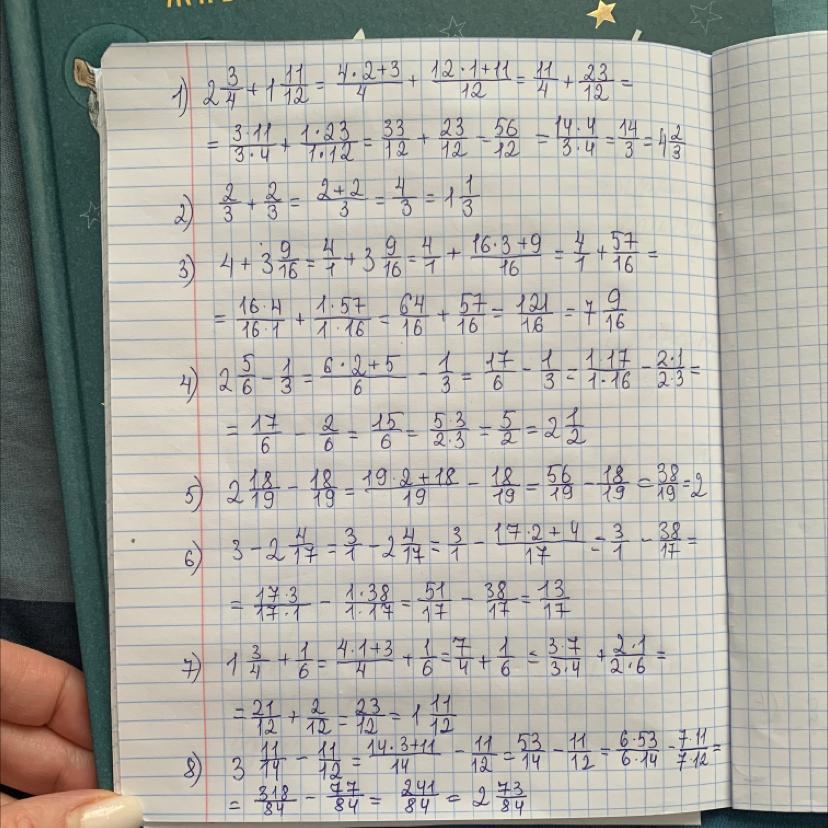 1) 2 3/4 + 1 11/12 = (4·2+3)/4 + (12·1+11)/12 = 11/4 + 23/12 =
= (3·11)/(3·4) + (1·23)/(1·12) = 33/12 + 23/12 = 56/12 = (14·4)/(3·4) = 14/3 = 4 2/3
2) 2/3 + 2/3 = (2+2)/3 = 4/3 = 1 1/3
3) 4 + 3 9/16 = 4/1 + 3 9/16 = 4/1 + (16·3+9)/16 = 4/1 + 57/16 =
= (16·4)/(16·1) + (1·57)/(1·16) = 64/16 + 57/16 = 121/16 = 7 9/16
4) 2 5/6 - 1/3 = (6·2+5)/6 - 1/3 = 17/6 - 1/3 = (1·17)/(1·16) - (2·1)/(2·3) =
= 17/6 - 2/6 = 15/6 = (5·3)/(2·3) = 5/2 = 2 1/2
5) 2 18/19 - 18/19 = (19·2+18)/19 - 18/19 = 56/19 - 18/19 = 38/19 = 2
6) 3 - 2 4/17 = 3/1 - 2 4/17 = 3/1 - (17·2+4)/17 = 3/1 - 38/17 =
= (17·3)/(17·1) - (1·38)/(1·17) = 51/17 - 38/17 = 13/17
7) 1 3/4 + 1/6 = (4·1+3)/4 + 1/6 = 7/4 + 1/6 = (3·7)/(3·4) + (2·1)/(2·6) =
= 21/12 + 2/12 = 23/12 = 1 11/12
8) 3 11/14 - 11/12 = (14·3+11)/14 - 11/12 = 53/14 - 11/12 = (6·53)/(6·14) - (7·11)/(7·12) =
= 318/84 - 77/84 = 241/84 = 2 73/84